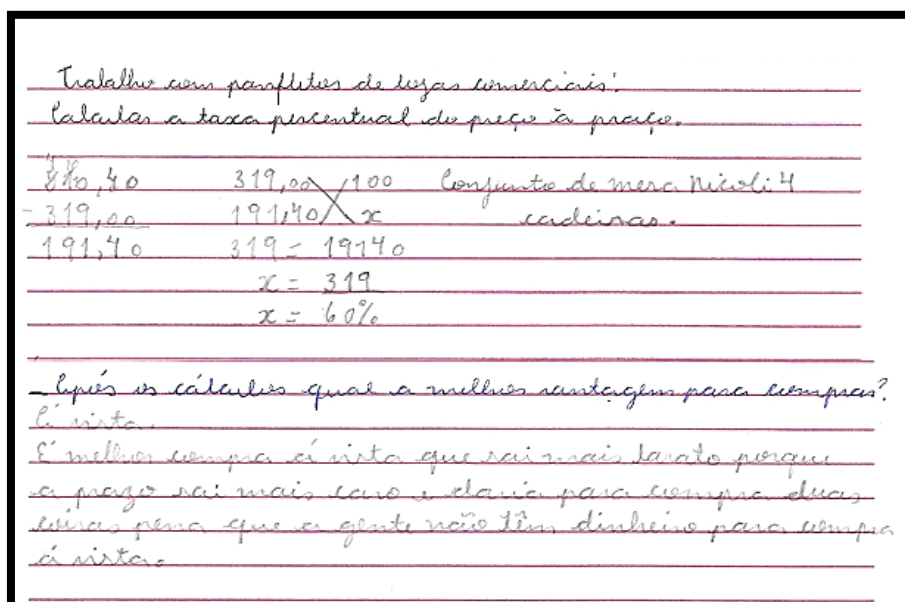 Trabalho com panfletos de lojas comerciais:
Calcular a taxa percentual do preço à praço.
510,40 319,00 100 Conjunto de mesa Nicoli 4
- 319,00 191,40 x cadeiras.
191,40 319 = 19140
x = 319
x = 60%
– Após os cálculos qual a melhor vantagem para comprar?
Á vista.
É melhor compra á vista que sai mais barato porque
a prazo sai mais caro e daria para compra duas
coisas pena que a gente não têm dinheiro para compra
á vista.